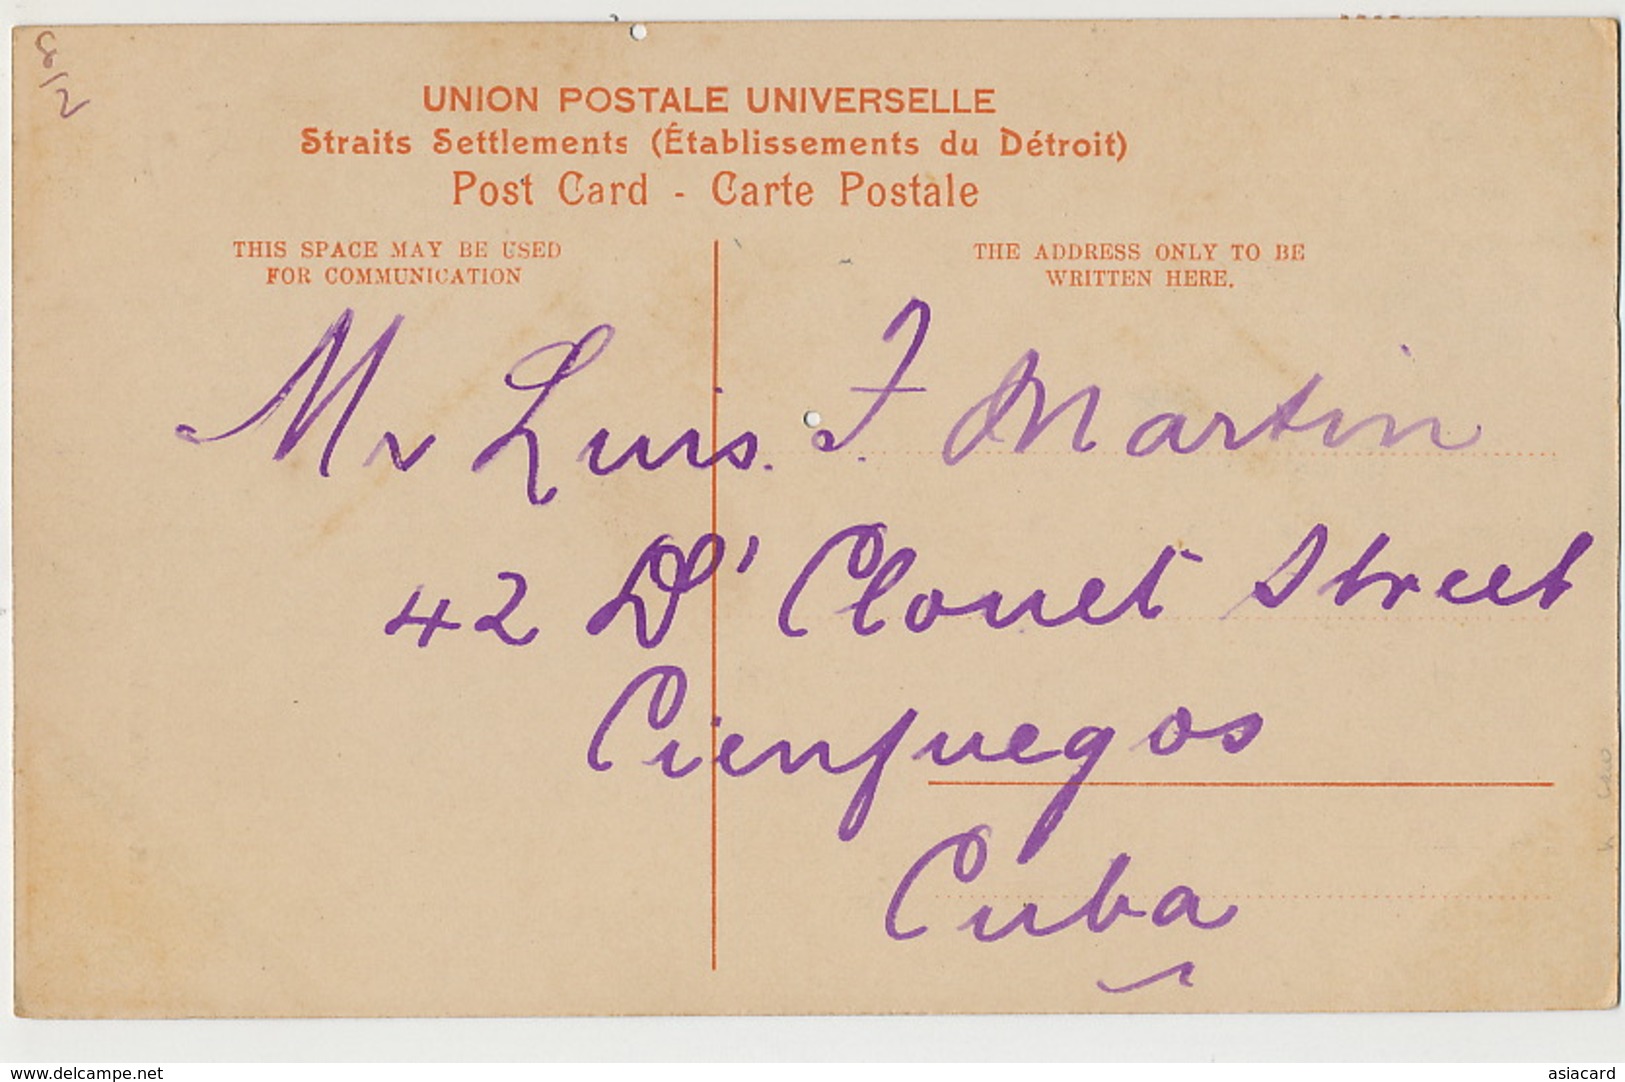 8/2
UNION POSTALE UNIVERSELLE
Straits Settlements (Établissements du Détroit)
Post Card - Carte Postale
THIS SPACE MAY BE USED
FOR COMMUNICATION
THE ADDRESS ONLY TO BE
WRITTEN HERE.
Mr Luis. F. Martin
42 D' Clouet Street
Cienfuegos
Cuba
www.delcampe.net
asiacard